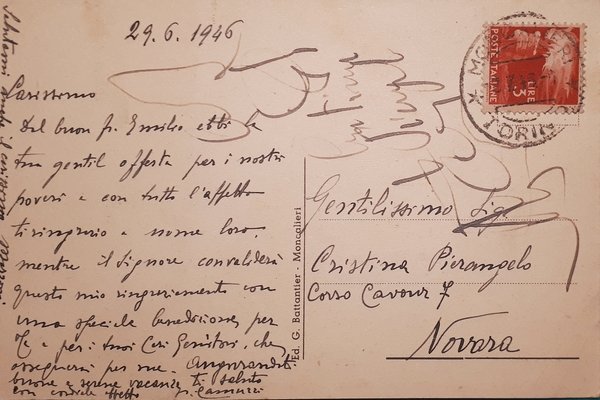 29.6.1946
Carissimo
Dal buon fr. Emilio ebbi la
tua gentil offerta per i nostri
poveri e con tutto l'affetto
ti ringrazio a nome loro,
mentre il Signore convaliderà
questo mio ringraziamento con
una speciale benedizione, per
Te e per i tuoi Cari Genitori, che
ossequierai per me. Augurandoti
buone e serene vacanze ti saluto
con cordiale affetto
Salutami anche il carissimo
Ed. G. Battantier - Moncalieri
POSTE ITALIANE
LIRE
3
TORINO
Gentilissimo Sig.
Cristina Pierangelo
Corso Cavour 7
Novara